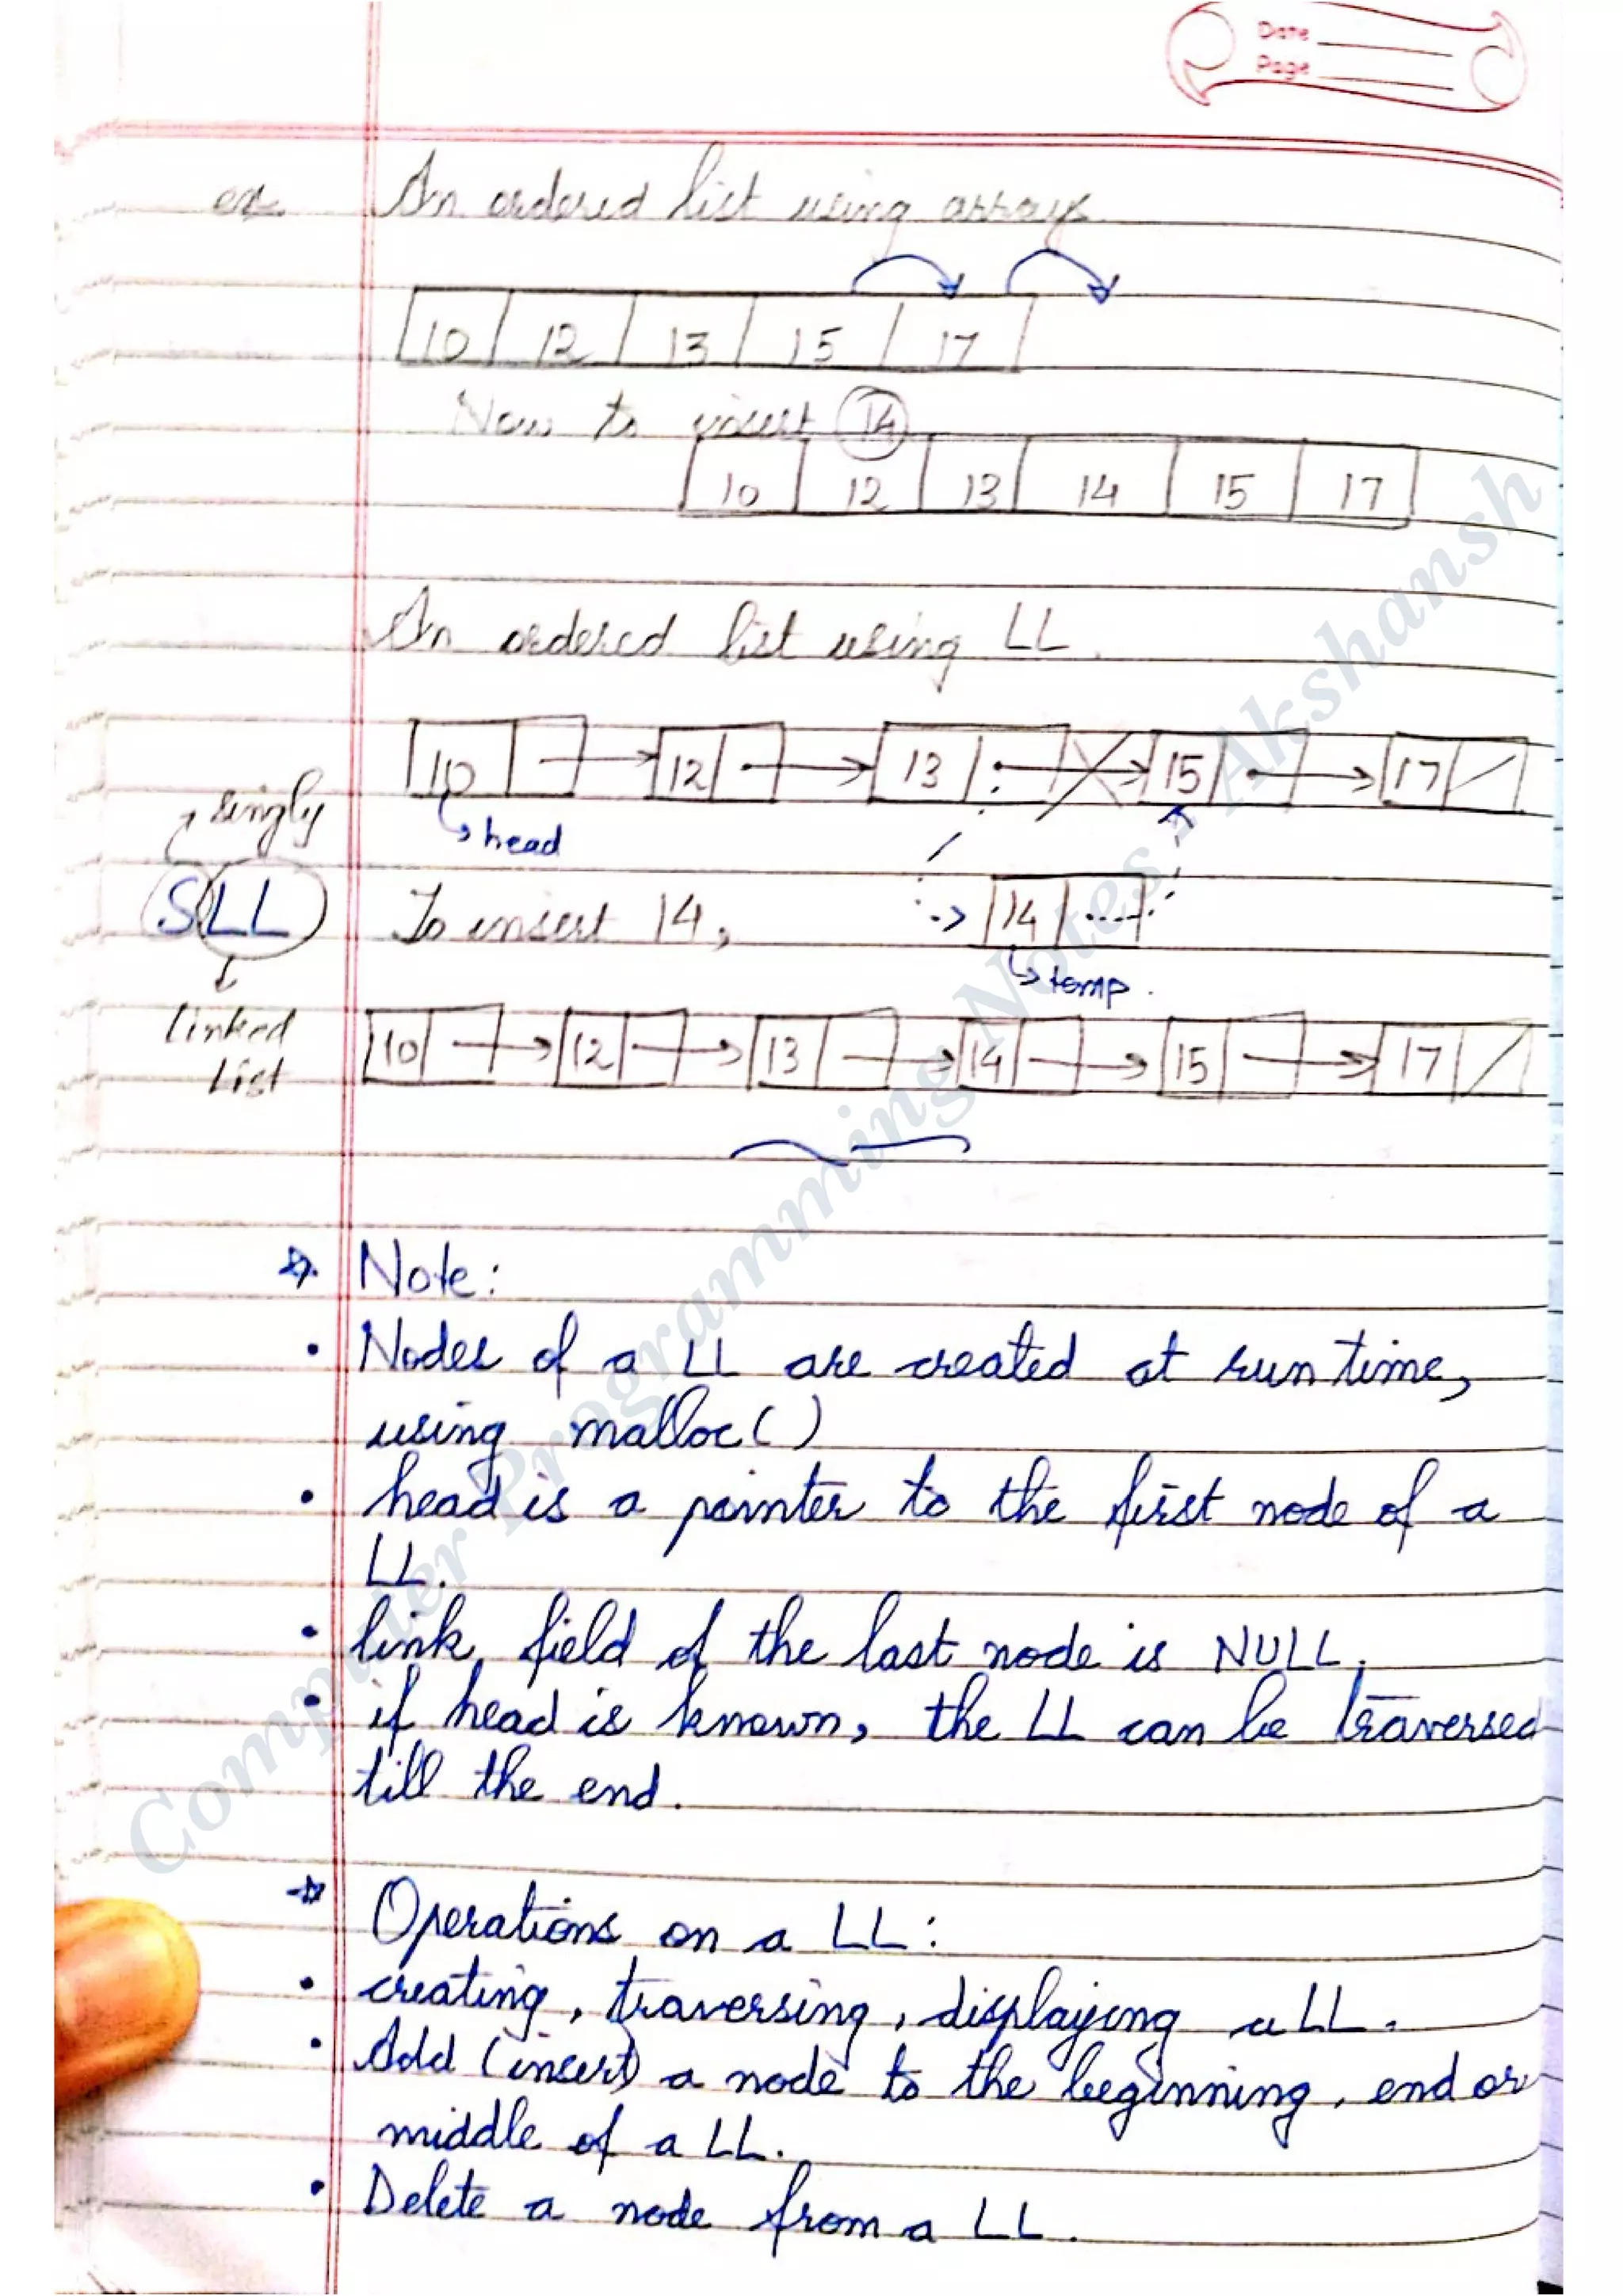 Date
Page
ex. An ordered list using arrays
10 12 13 15 17
Now to insert 14
10 12 13 14 15 17
An ordered list using LL.
10 12 13 15 17
singly
head
SLL To insert 14, 14
temp.
Linked
List
10 12 13 14 15 17
Note:
• Nodes of a LL are created at run time,
using malloc()
• head is a pointer to the first node of a
LL.
• link field of the last node is NULL.
• if head is known, the LL can be traversed
till the end.
Operations on a LL:
• creating, traversing, displaying a LL.
• Add (insert) a node to the beginning, end or
middle of a LL.
• Delete a node from a LL.
Computer Programming Notes - Akshansh